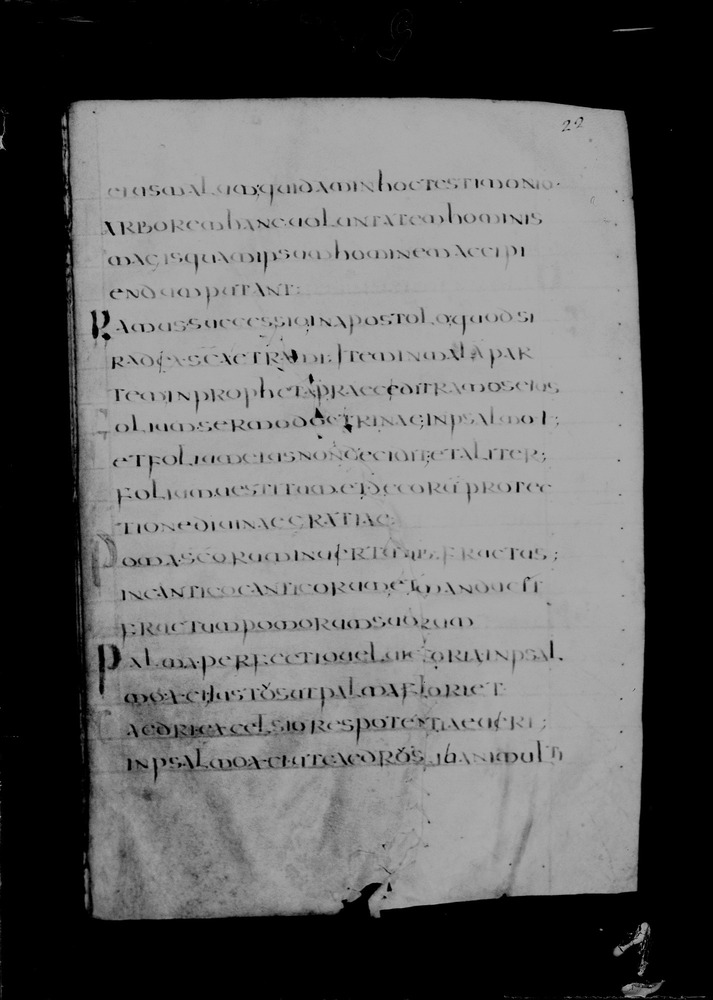 22
eius malum; quidam in hoc testimonio
arborem hanc uoluntatem hominis
magis quam ipsum hominem accipi
endum putant:
Ramus successio in apostolo; quod si
radix sca et rami; Item in mala par
tem in propheta praecedit ramos eius
Folium sermo doctrinae; in psalmo I;
et folium eius non decidit; et aliter;
Folium uestitum et decora protec
tione diuinae gratiae;
Poma scorum in uirtutis fructus;
in cantico canticorum et manducet
fructum pomorum suorum
Palma perfectio uel uictoria in psal
mo xci iustos ut palma floriet
Caedri excelsiores potentiae uiri;
in psalmo xci ut caedros multi